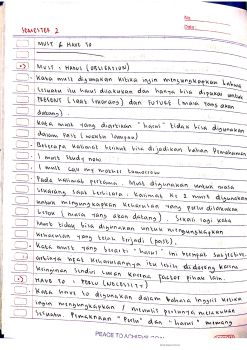 No.
Date
SEMESTER 2
MUST & HAVE TO
MUST : HARUS (OBLIGATION)
Kata must digunakan ketika ingin mengungkapkan bahwa
sesuatu itu harus dilakukan dan hanya bisa dipakai untuk
PRESENT (saat sekarang) dan FUTURE (masa yang akan
datang)
Kata must yang diartikan "harus" tidak bisa digunakan
dalam Past (waktu lampau)
Beberapa kalimat berikut bisa dijadikan bahan pemahaman
I must study now
I must call my mother tomorrow
Pada kalimat pertama. Must digunakan untuk masa
sekarang saat berbicara. Kalimat ke 2 must digunakan
untuk mengungkapkan keharusan yang perlu dilakukan
besok (masa yang akan datang). Sekali lagi kata
must tidak bisa digunakan untuk mengungkapkan
keharusan yang telah terjadi (past).
Kata must yang berarti "harus" ini bersifat subjective.
artinya sifat keharusannya itu lebih didorong karena
keinginan sendiri bukan karena faktor pihak lain.
HAVE TO : PERLU (NECESSITY)
Kata have to digunakan dalam bahasa Inggris ketika
ingin mengungkapkan / menulis perlunya melakukan
sesuatu. Pemaknaan "Perlu" dan "harus" memang
PEACE TO ACHIEVE